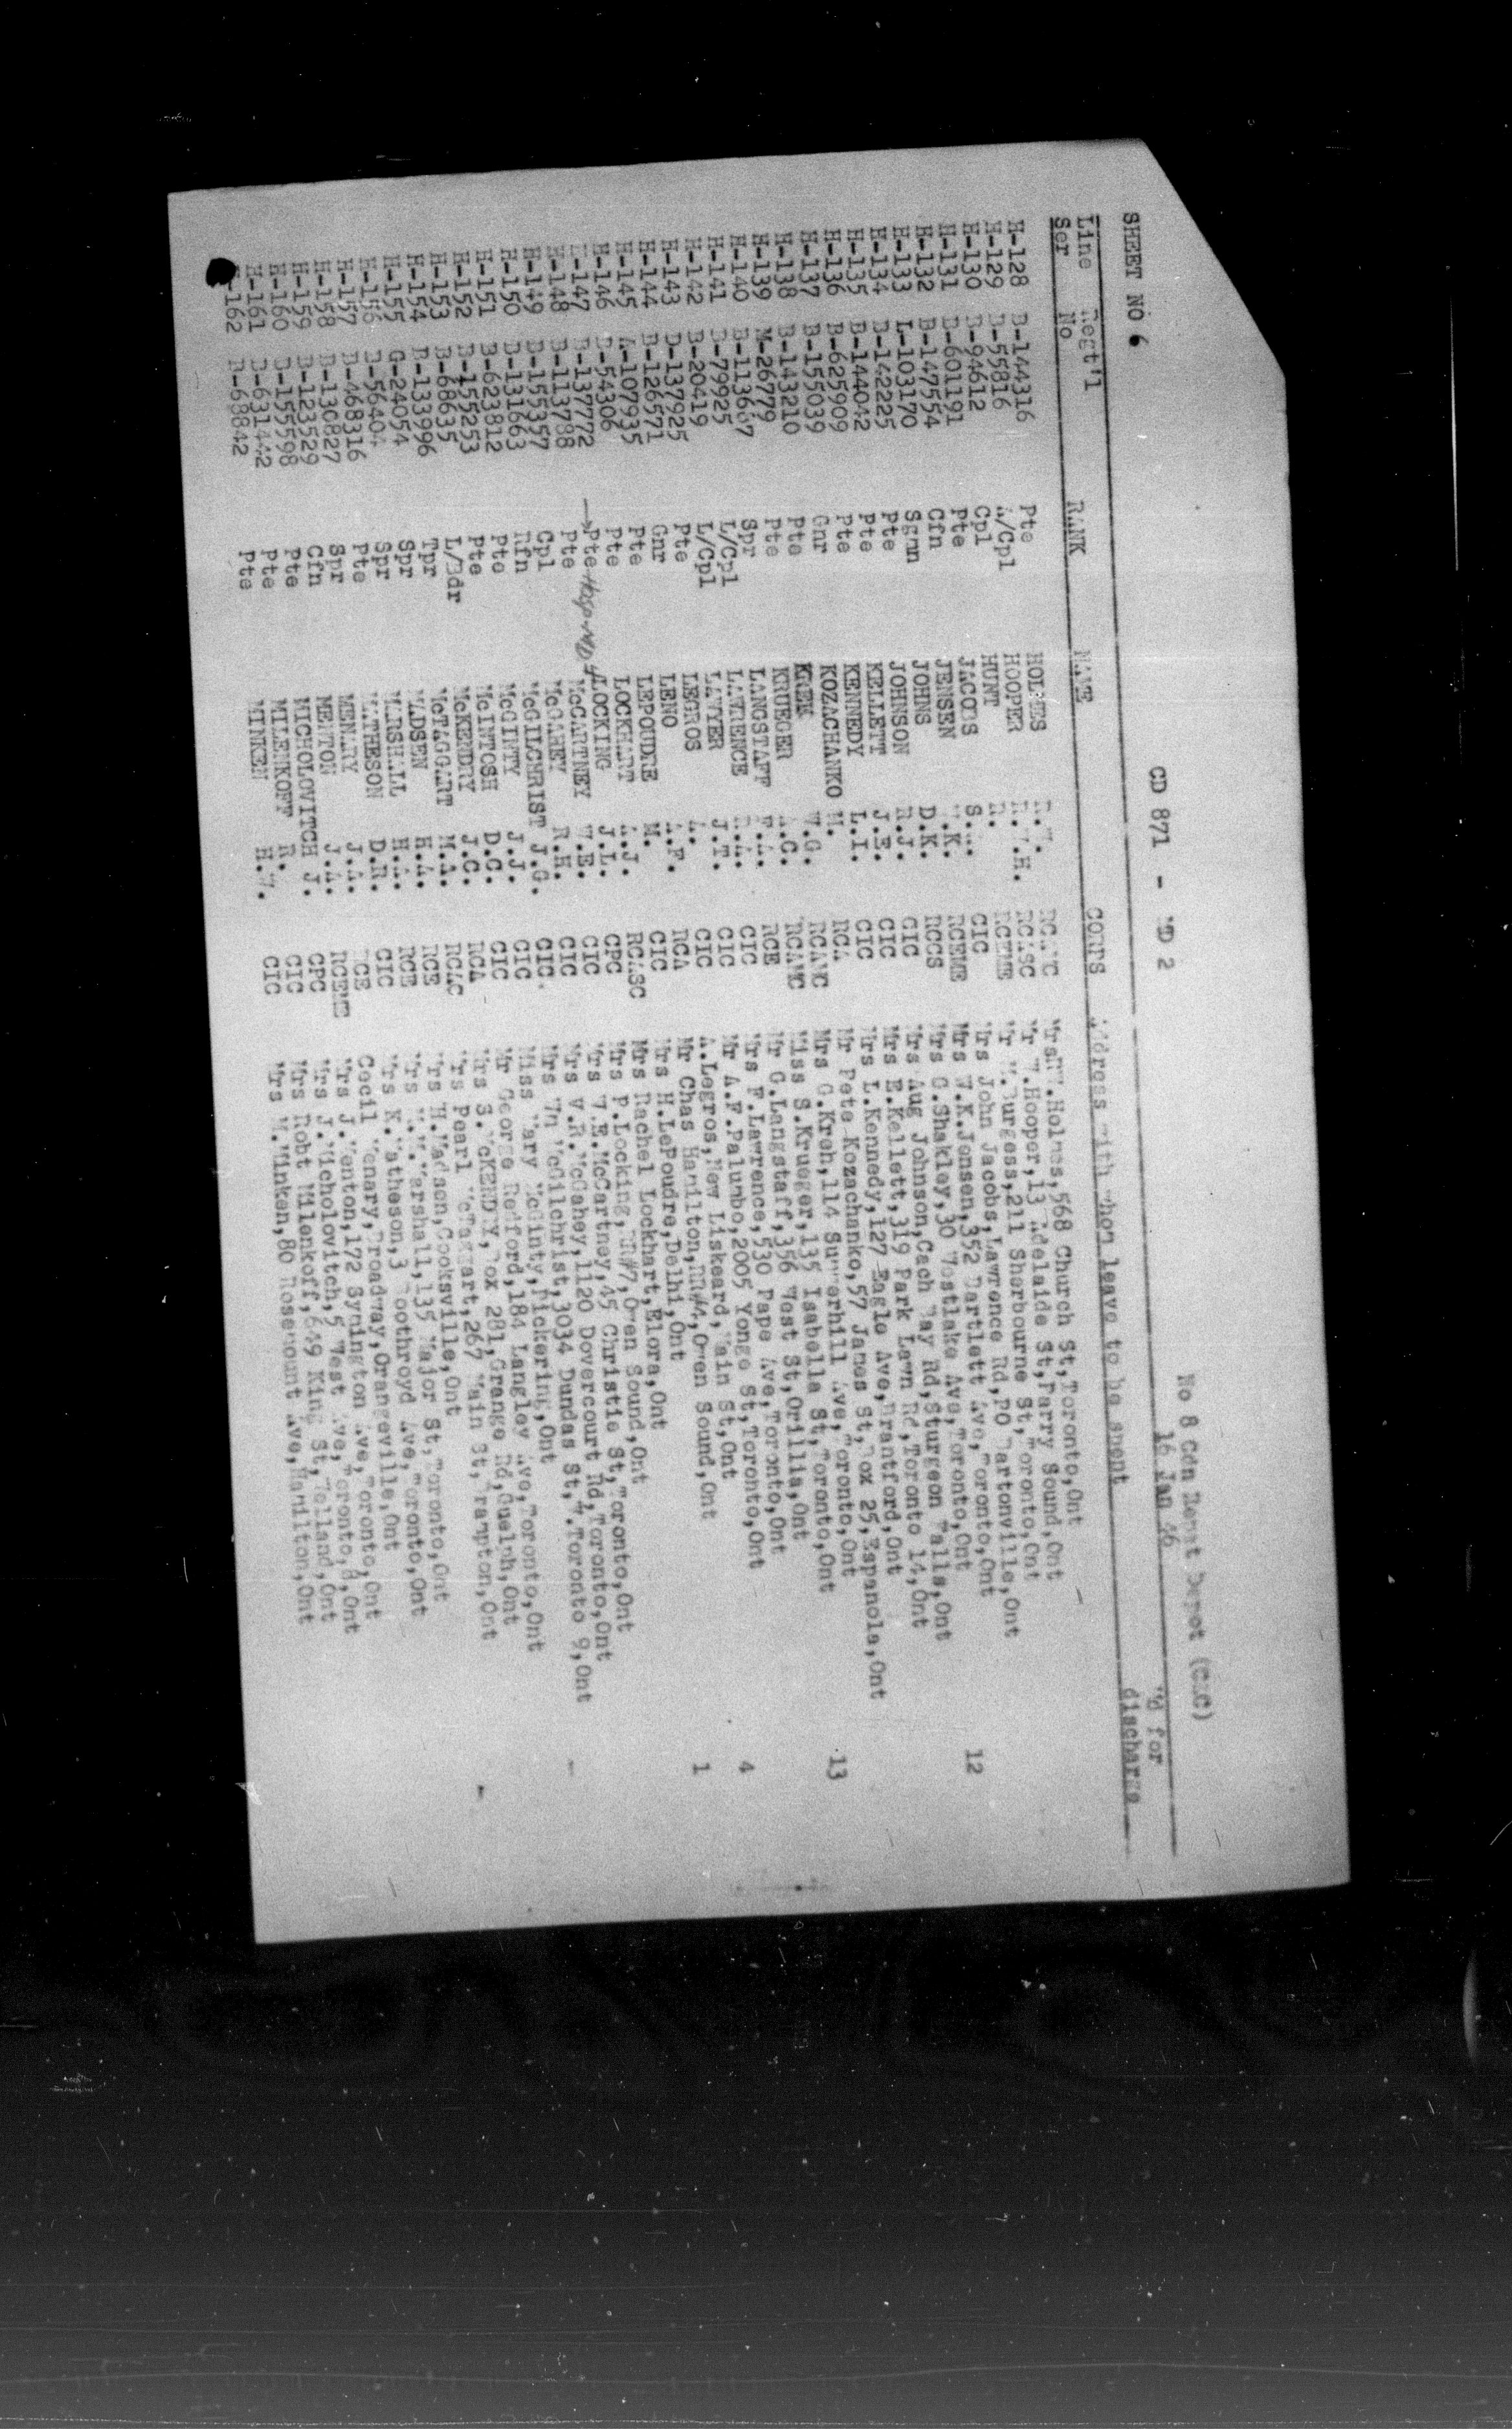 No 8 Cdn Repat Depot (CAC)
SHEET NO 6 CD 871 - MD 2 16 Jan 46 MD for
Line Regt'l RANK NAME CORPS Address with whom leave to be spent discharge
Ser No
H-128 B-144316 Pte HOLMES RCAMC Holmes,568 Church St,Toronto,Ont
H-129 B-55816 A/Cpl HOOPER RCASC Mr W.Hooper,13 Adelaide St,Parry Sound,Ont
H-130 B-94612 Cpl HUNT R. RCEME Mr M.Burgess,211 Sherbourne St,Toronto,Ont
H-131 B-601191 Pte JACOBS S.W. CIC Mrs John Jacobs,Lawrence Rd,PO Bartonville,Ont
H-132 B-147554 Cfn JENSEN W.K. RCEME Mrs W.K.Jensen,352 Bartlett Ave,Toronto,Ont
H-133 L-103170 Sgmn JOHNS D.K. RCCS Mrs G.Shakley,30 Westlake Ave,Toronto,Ont 12
H-134 B-142225 Pte JOHNSON R.J. CIC Mrs Aug Johnson,Cach Bay Rd,Sturgeon Falls,Ont
H-135 B-144042 Pte KELLETT J.E. CIC Mrs E.Kellett,319 Park Lawn Rd,Toronto 14,Ont
H-136 B-625909 Pte KENNEDY L.I. CIC Mrs L.Kennedy,127 Eagle Ave,Brantford,Ont
H-137 B-155039 Gnr KOZACHANKO M. RCA Mr Pete Kozachanko,57 James St,Box 25,Espanola,Ont
H-138 B-143210 Pte KREH W.G. RCAMC Mrs G.Kreh,114 Summerhill Ave,Toronto,Ont
H-139 M-26779 Pte KRUEGER A.G. RCAMC Miss S.Krueger,135 Isabella St,Toronto,Ont 13
H-140 B-113667 Spr LANGSTAFF F.A. RCE Mr G.Langstaff,356 West St,Orillia,Ont
H-141 B-79925 L/Cpl LAWRENCE R.A. CIC Mrs F.Lawrence,530 Pape Ave,Toronto,Ont
H-142 B-20419 L/Cpl LAWYER J.T. CIC Mr A.F.Palumbo,2005 Yonge St,Toronto,Ont
H-143 D-137925 Pte LEGROS A. CIC A.Legros,New Liskeard,Main St,Ont 4
H-144 B-126571 Gnr LENO A.F. RCA Mr Chas Hamilton,RR#4,Owen Sound,Ont
H-145 A-107935 Pte LEPOUDRE M. CIC Mrs H.LePoudre,Delhi,Ont 1
H-146 B-54306 Pte LOCKHART A.J. RCASC Mrs Rachel Lockhart,Elora,Ont
H-147 B-137772 Pte Hosp-MD 4 LOCKING J.L. CPC Mrs P.Locking,RR#7,Owen Sound,Ont
H-148 B-113788 Pte McCARTNEY W.E. CIC Mrs W.E.McCartney,45 Christie St,Toronto,Ont
H-149 B-155357 Cpl McGAHEY R.H. CIC Mrs V.R.McGahey,1120 Dovercourt Rd,Toronto,Ont
H-150 B-131663 Rfn McGILCHRIST J.G. CIC Mrs Wm McGilchrist,3034 Dundas St,W.Toronto 9,Ont
H-151 B-623812 Pte McGINTY J.J. CIC Miss Mary McGinty,Pickering,Ont
H-152 B-155253 Pte McINTOSH D.C. CIC Mr George Redford,184 Langley Ave,Toronto,Ont
H-153 B-68635 L/Bdr McKENDRY J.C. RCA Mrs S.McKENDRY,Box 281,Grange Rd,Guelph,Ont
H-154 B-133996 Tpr McTAGGART M.A. RCAC Mrs Pearl McTaggart,267 Main St,Brampton,Ont
H-155 G-24054 Spr MADSEN H.A. RCE Mrs H.Madson,Cooksville,Ont
H-156 B-56404 Spr MARSHALL H.A. RCE Mrs M.Marshall,135 Major St,Toronto,Ont
H-157 B-468316 Pte MATHESON D.R. CIC Mrs K.Matheson,3 Boothroyd Ave,Toronto,Ont
H-158 B-130827 Spr MENARY J.A. RCE Cecil Menary,Broadway,Orangeville,Ont
H-159 B-123529 Cfn MENTON J.A. RCEME Mrs J.Menton,172 Symington Ave,Toronto,Ont
H-160 B-155598 Pte MICHOLOVITCH J. CPC Mrs J.Micholovitch,5 West Ave,Toronto,8,Ont
H-161 B-63142 Pte MILENKOFF R. CIC Mrs Robt Milenkoff,649 King St,Welland,Ont
H-162 B-68842 Pte MINKEN H.W. CIC Mrs M.Minken,80 Rosemount Ave,Hamilton,Ont